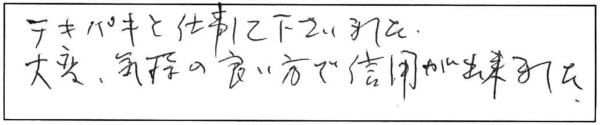 テキパキと仕事して下さいました.
大変、気持の良い方で信用が出来ました.